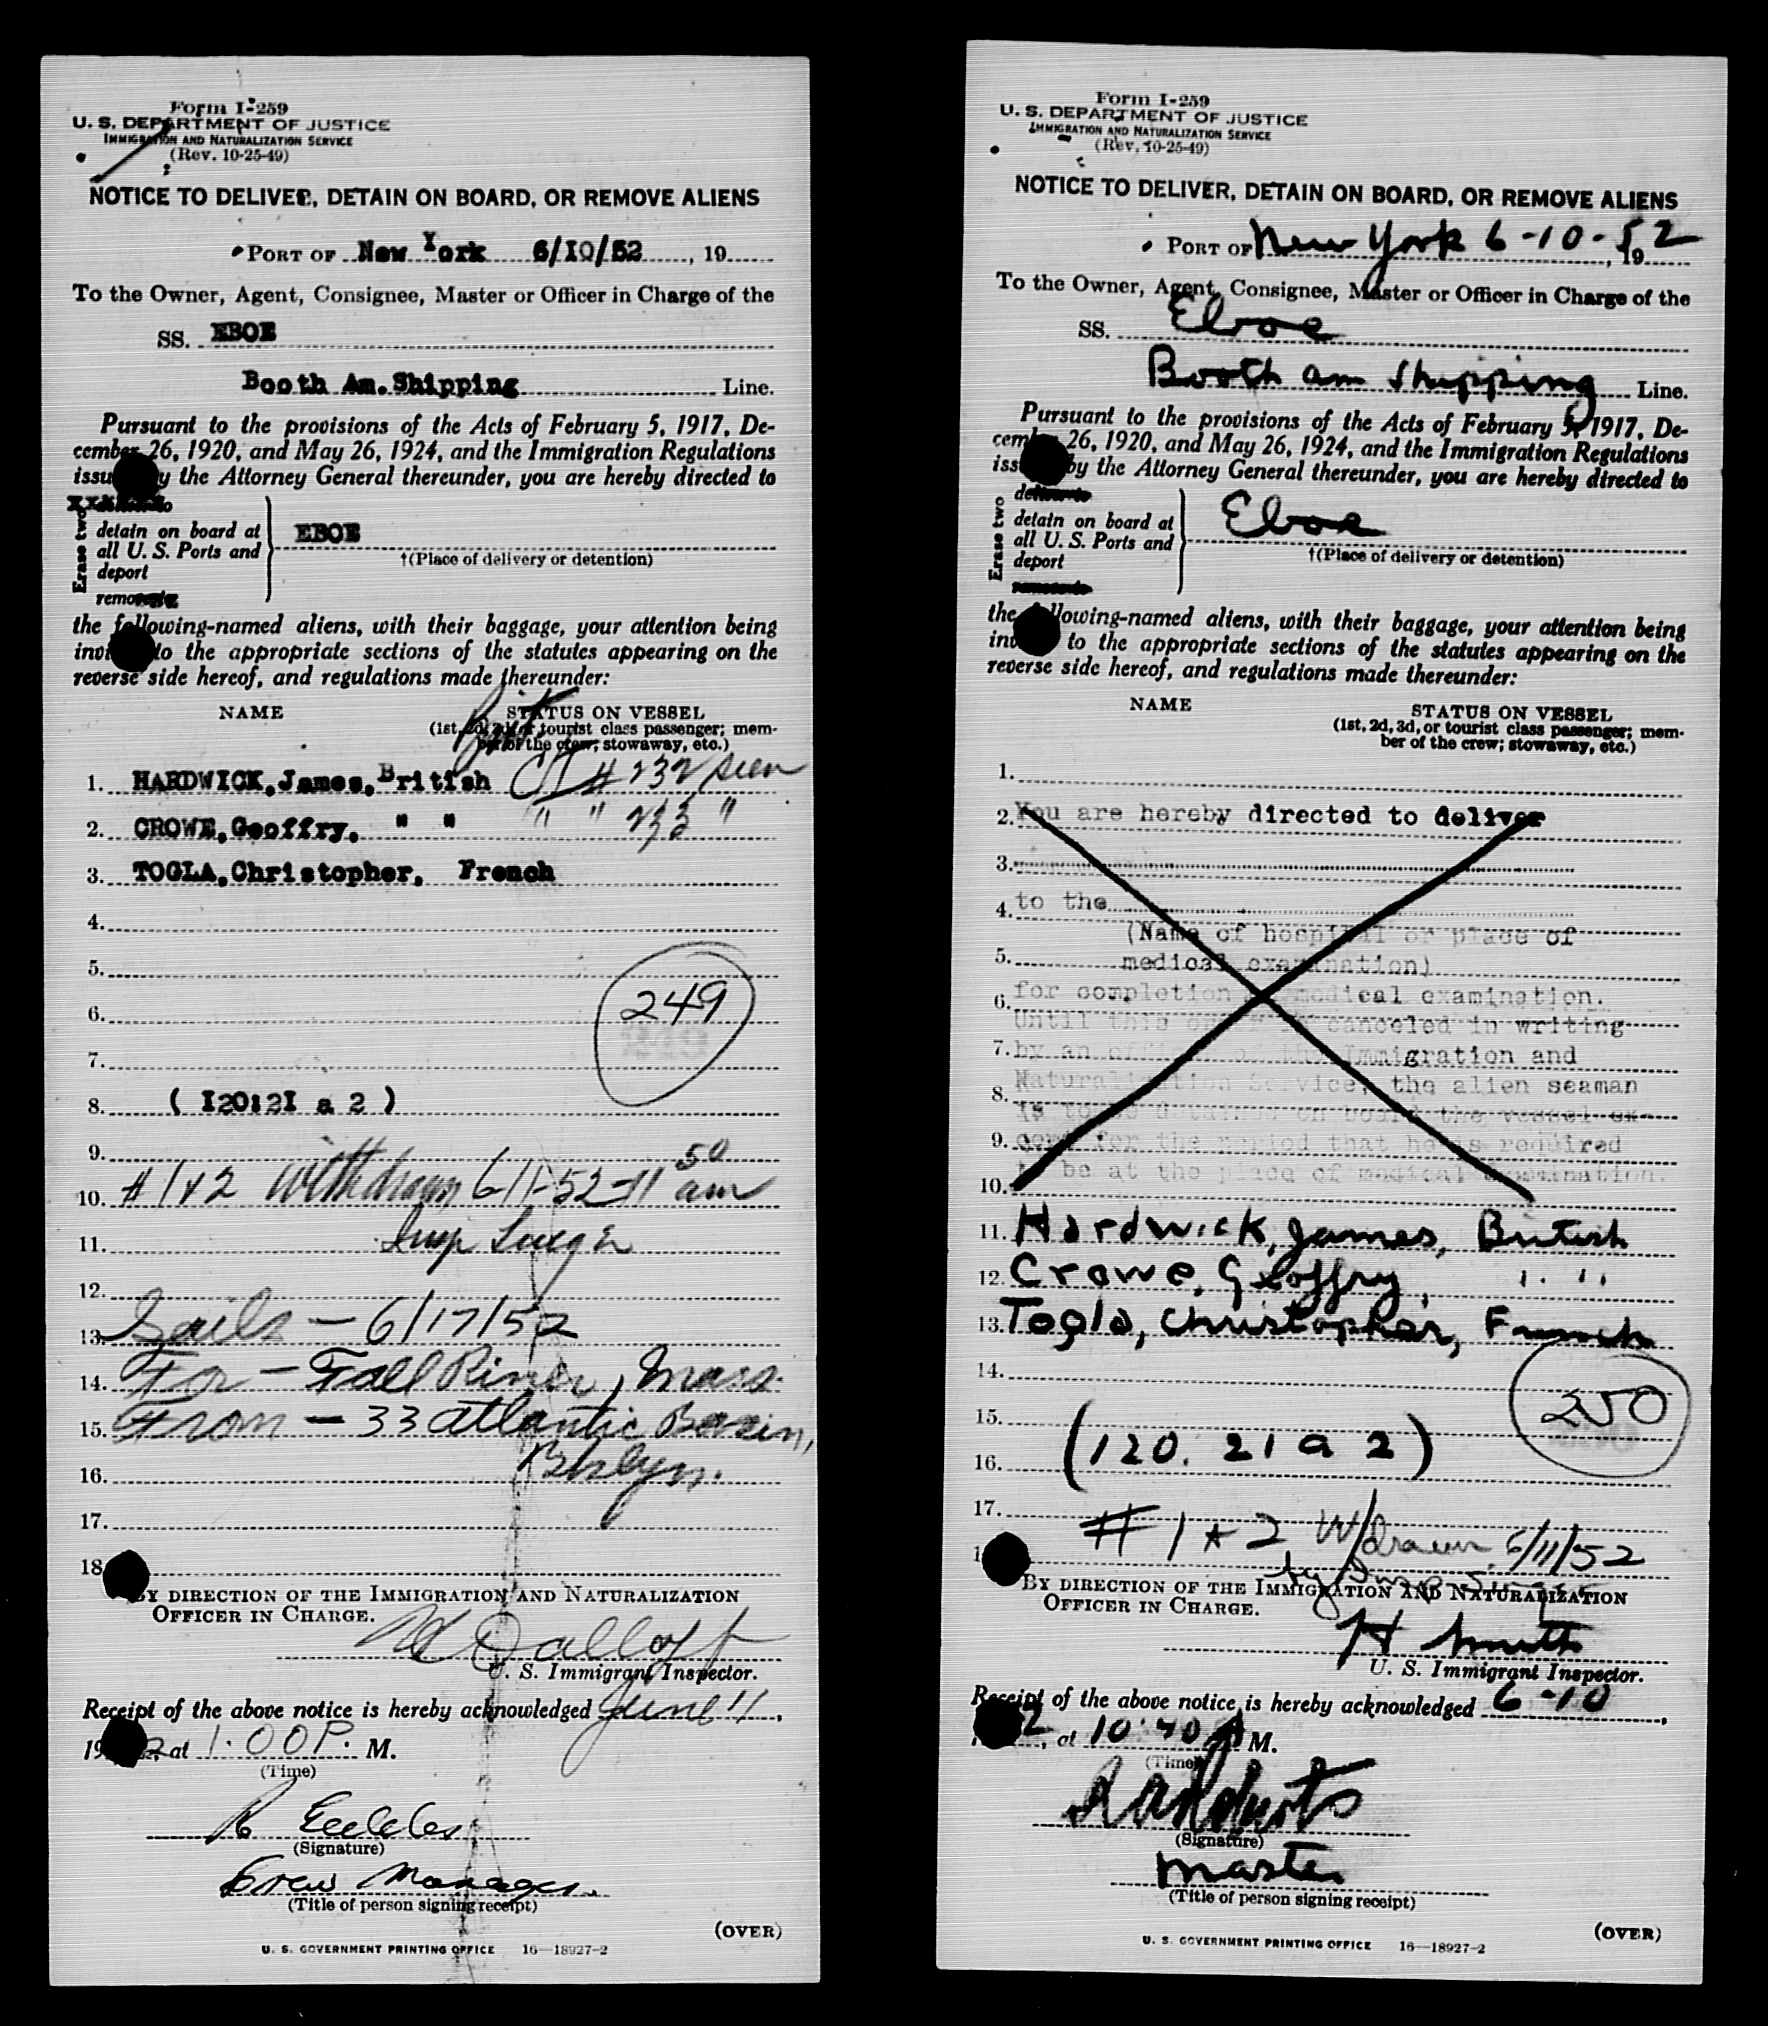 Form I-259
U. S. DEPARTMENT OF JUSTICE
IMMIGRATION AND NATURALIZATION SERVICE
(Rev. 10-25-49)
NOTICE TO DELIVER, DETAIN ON BOARD, OR REMOVE ALIENS
PORT OF New York 6/10/52, 19
To the Owner, Agent, Consignee, Master or Officer in Charge of the
SS. EBOE
Booth Am. Shipping Line.
Pursuant to the provisions of the Acts of February 5, 1917, De-
cember 26, 1920, and May 26, 1924, and the Immigration Regulations
issu y the Attorney General thereunder, you are hereby directed to
Erase two
detain on board at
all U. S. Ports and
deport
remo
EBOE
†(Place of delivery or detention)
the following-named aliens, with their baggage, your attention being
invi to the appropriate sections of the statutes appearing on the
reverse side hereof, and regulations made thereunder:
NAME
STATUS ON VESSEL
(1st, 2d, 3d, or tourist class passenger; mem-
ber of the crew; stowaway, etc.)
Brit
1. HARDWICK, James, British CI # 232 seen
2. CROWE, Geoffry, " " " " 233 "
3. TOGLA, Christopher, French
4.
5.
249
6.
7.
8. ( I20:2I a 2 )
9.
10. # 1 & 2 withdrawn 6-11-52-11 50 am
11. Insp
12.
13. Sails - 6/17/52
14. For - Fall River, Mass.
15. From - 33 Atlantic Basin,
16. Bklyn.
17.
18
BY DIRECTION OF THE IMMIGRATION AND NATURALIZATION
OFFICER IN CHARGE.
U. S. Immigrant Inspector.
Receipt of the above notice is hereby acknowledged June 11,
19 2, at 1:00 P. M.
(Time)
R Eccles
(Signature)
Crew Manager.
(Title of person signing receipt)
(OVER)
U. S. GOVERNMENT PRINTING OFFICE 16—18927-2
Form I-259
U. S. DEPARTMENT OF JUSTICE
IMMIGRATION AND NATURALIZATION SERVICE
(Rev. 10-25-49)
NOTICE TO DELIVER, DETAIN ON BOARD, OR REMOVE ALIENS
PORT OF New York 6-10-52, 19
To the Owner, Agent, Consignee, Master or Officer in Charge of the
SS. Eboe
Booth Am Shipping Line.
Pursuant to the provisions of the Acts of February 5, 1917, De-
cem 26, 1920, and May 26, 1924, and the Immigration Regulations
iss by the Attorney General thereunder, you are hereby directed to
Erase two
detain on board at
all U. S. Ports and
deport
Eboe
†(Place of delivery or detention)
the following-named aliens, with their baggage, your attention being
inv to the appropriate sections of the statutes appearing on the
reverse side hereof, and regulations made thereunder:
NAME
STATUS ON VESSEL
(1st, 2d, 3d, or tourist class passenger; mem-
ber of the crew; stowaway, etc.)
1.
2. You are hereby directed to deliver
3.
4. to the
(Name of hospital or place of
5. medical examination)
6. for completion of medical examination.
Until this order is canceled in writing
7. by an officer of the Immigration and
Naturalization Service, the alien seaman
8. is to be detained on board the vessel ex-
9. cept for the period that he is required
10. to be at the place of medical examination.
11. Hardwick, James, British
12. Crowe, Geoffry, " "
13. Togla, Christopher, French
14.
15.
250
16. (120. 21 a 2)
17.
# 1 & 2 W/drawn 6/11/52
by Insp
BY DIRECTION OF THE IMMIGRATION AND NATURALIZATION
OFFICER IN CHARGE.
H Smith
U. S. Immigrant Inspector.
Receipt of the above notice is hereby acknowledged 6-10,
2, at 10:40 A M.
(Time)
(Signature)
Master
(Title of person signing receipt)
(OVER)
U. S. GOVERNMENT PRINTING OFFICE 16—18927-2